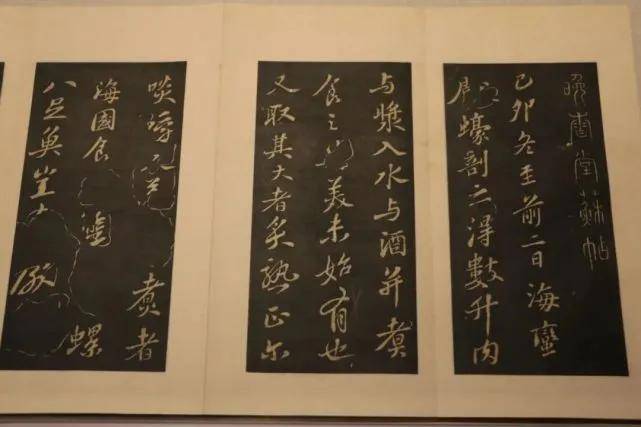 晚香堂蘇帖
己卯冬至前二日海蠻
獻蠔剖之得數升肉
与漿入水与酒并煮
食之甚美未始有也
又取其大者炙熟正尔
啖嚼 煮者
海國食 螺
八足魚豈